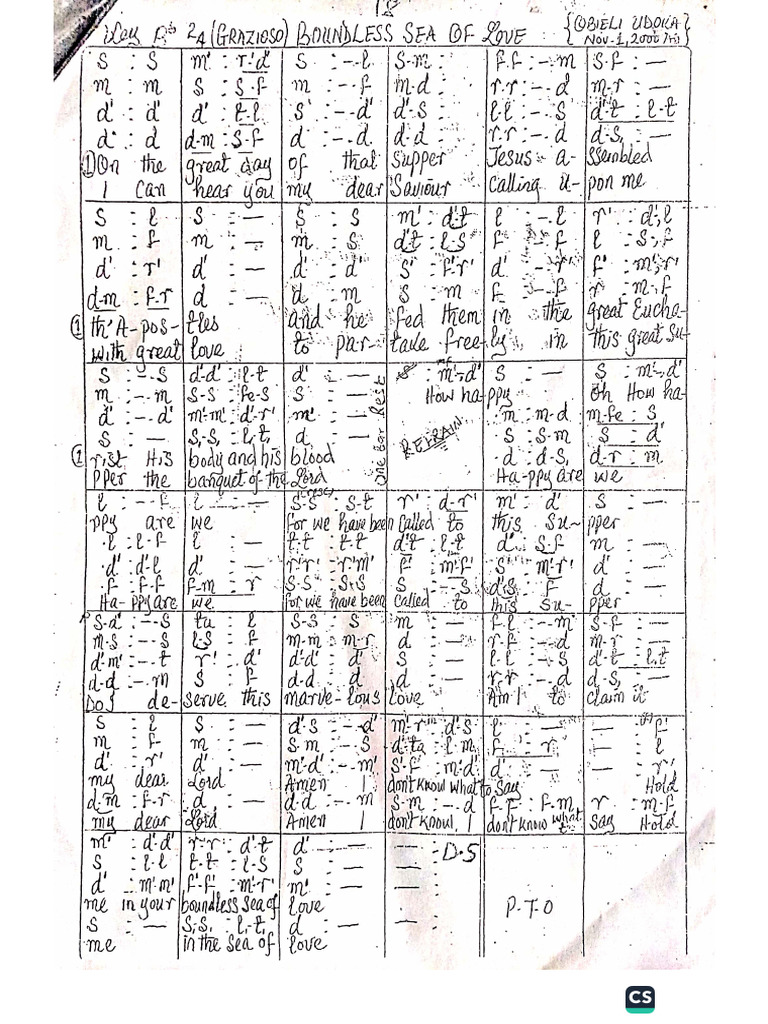 Key Db 2/4 (GRAZIOSO) BOUNDLESS SEA OF LOVE {OBIELI UDOKA Nov. 1, 2000
s : s | m' : r'.d' | s : -.l | s.m : | f.f : -.m | s.f : —
m : m | s : s.f | m : -.f | m.d : | r.r : -.d | m.r : —
d' : d' | d' : t.l | s : -.d' | d'.s : | l.l : -.s | d'.t : l.t
d : d | d.m : s.f | d : -.d | d.d : | r.r : -.d | d.s, : —
1) On the | great day | of that | supper | Jesus a- | ssembled
I can | hear you | my dear | Saviour | calling u- | pon me
s : l | s : — | s : s | m' : d'.t | l : -.l | r' : d'.l
m : f | m : — | m : s | d'.t : l.s | f : -.f | l : s.f
d' : r' | d' : — | d' : d' | s' : f'.r' | d' : -.r' | f' : m'.r'
d.m : f.r | d : — | d : m | s : m | f : -.f | r : m.f
1) th' A-pos- | tles | and he | fed them | in the | great Eucha-
with great | love | to par- | take free- | ly in | this great Su-
s : -.s | d'.d' : l.t | d' : — | : m'.d' | s : — | s : m'.d'
m : -.m | s.s : fe.s | s : — | How ha- | ppy | Oh How ha-
d' : -.d' | m'.m' : d'.r' | m' : — | m : m.d | m.fe : s
s : — | s,.s, : l,.t, | d : — | REFRAIN | s : s.m | s : d'
1) rist His | body and his | blood | One bar Rest | d : d.s, | d.r : m
pper the | banquet of the | Lord | Ha-ppy are | we
l : -.f | l : — | s.s : s.t | r' : d'.r' | m' : d' | s : —
ppy are | we | for we have been | called to | this su- | pper
l : l.f | l : — | t.t : t.t | d'.t : l.t | d' : s.f | m : —
d' : d'.l | d' : — | r'r' : r'm' | f' : m'.f' | s' : m'.r' | d' : —
f : f.f | f.m : r | s.s : s.s | s : -.s | d'.s : f | d : —
Ha-ppy are | we | for we have been | called to | this su- | pper
s.d' : -.s | ta : l | s.s : s | m : — | f.l : -.m | s.f : —
m.s : -.s | l.s : f | m.m : m.r | d : — | r.f : -.d | m.r : —
d'.m' : -.t | r' : d' | d'.d' : d' | s : — | l.l : -.s | d'.t : l.t
d.d : -.m | s : f | d.d : d | d : — | r.r : -.d | d.s, : —
Do I de- | serve this | marve-lous | love | Am I to | claim it
s : l | s : — | d'.s : -.d' | m'.r' : d'.s | l : — | — : f'
m : f | m : — | s.m : s | d'.ta : l.m | f : r | — : l
d' : r' | d' : — | m'.d' : -.m' | s'.f' : m'.d' | d' : — | — : r'
my dear | Lord | Amen I | don't know what to say | Hold
d.m : f.r | d : — | d.d : -.m | s.m : -.d | f.f : f.m | r : m.f
my dear | Lord | Amen I | don't know, I | don't know what t' | say Hold
m' : d'.d' | r'.r' : d'.t | d' : — | — : D.S
s : l.l | t.t : l.s | s : — | — : —
d' : m'.m' | f'.f' : m'.r' | m' : — | — : —
me in your | boundless sea of | love | P.T.O
s : — | s,.s, : l,.t, | d : — | — : —
me | in the sea of | love
CS